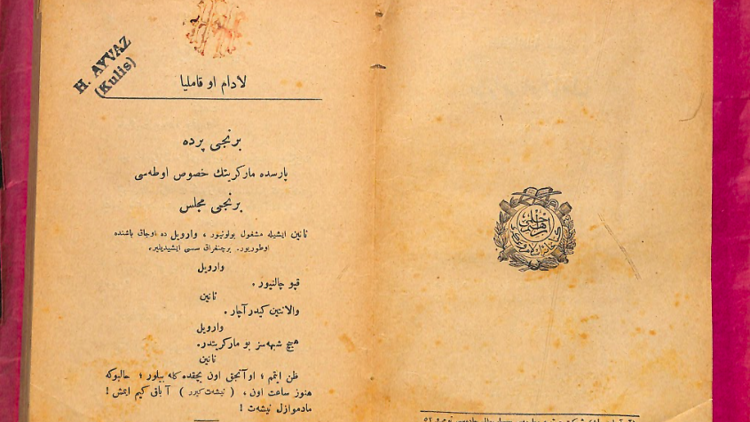 H. AYVAZ
(Kulis)
لادام او قاملیا
برنجی پرده
پارسده مارکریتك خصوص اوطه‌سی
برنجی مجلس
نانین ایشیله مشغول بولونیور ، وارویل ده اوجاق باشنده
اوطوریور. برچنغراق سسی ایشیدیلیر.
وارویل
قپو چالنیور .
نانین
والانتین کیدر آچار .
وارویل
هیچ شبهه‌سز بو مارکریتدر.
نانین
ظن ایتمم ؛ اوآنجق اون بچقده کله بیلور ؛ حالبوکه
هنوز ساعت اون ، ( نیشت کیرر ) آ باقی کیم ایمش !
مادموازل نیشت !